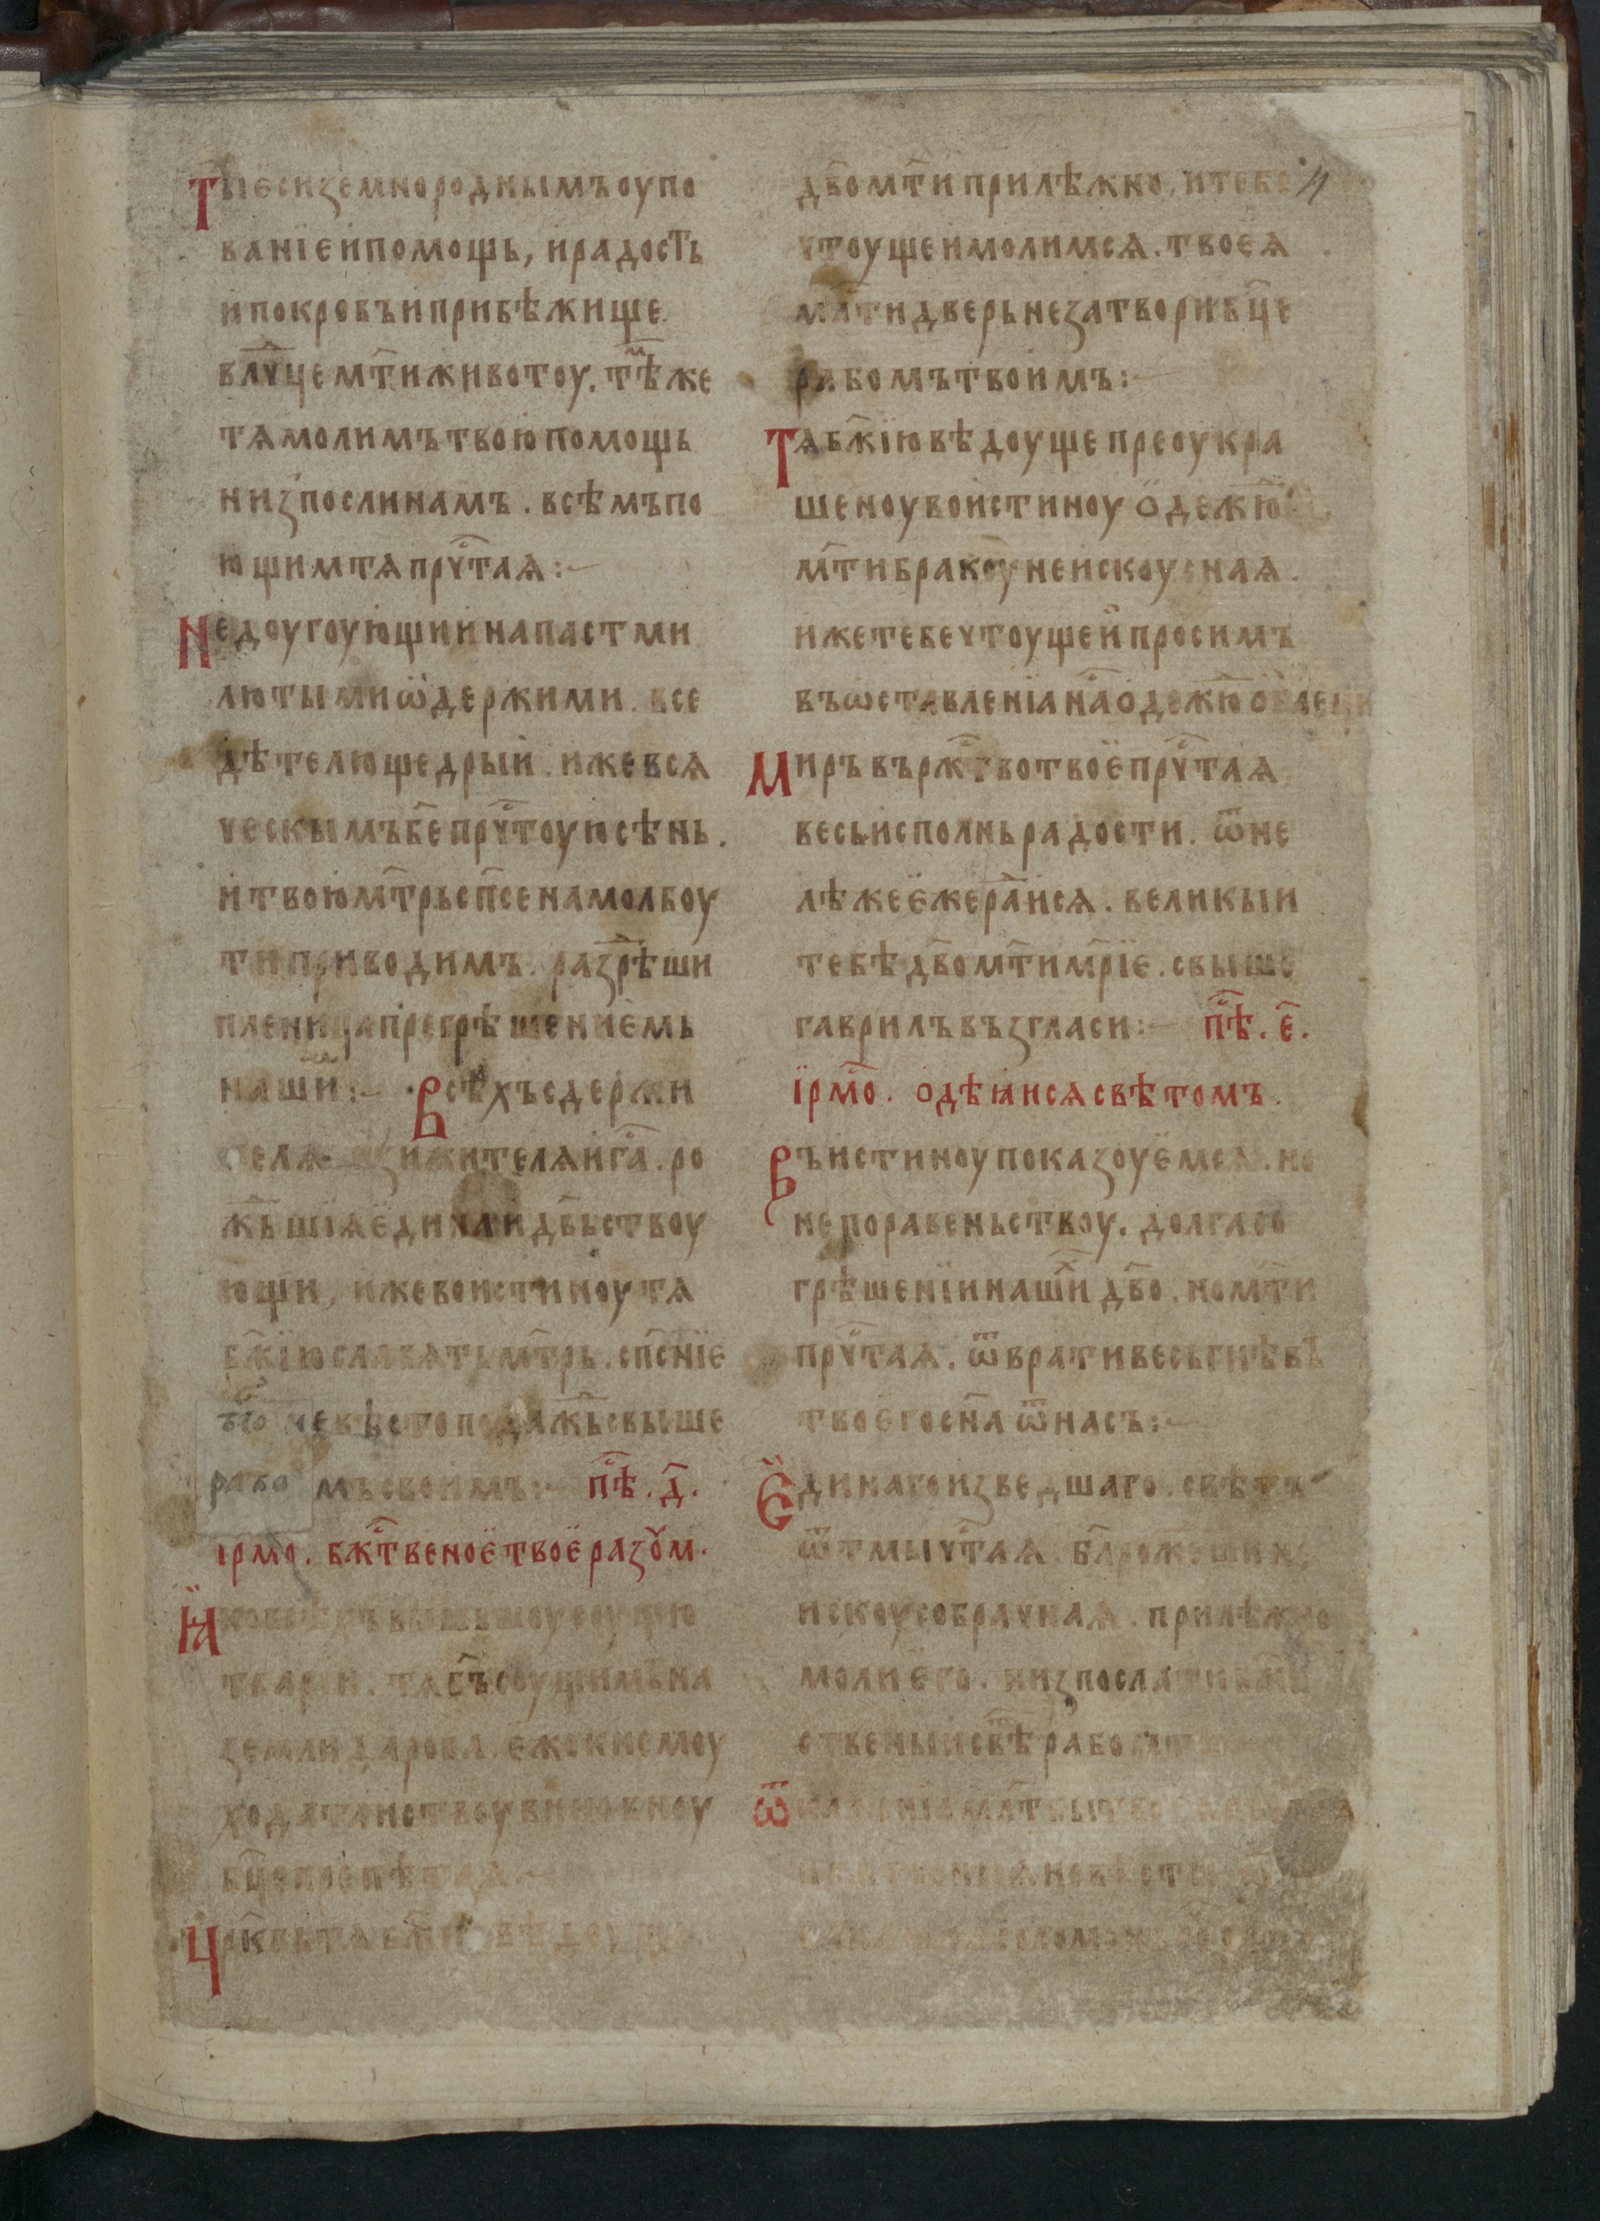 Тыєсиземнороднымъоупо
ваніеипомощь, ирадость
ипокровъиприбѣжище.
влⷣчцемт҃иживотоу. тѣⷨже
тѧмолимътвоюпомощь
низпослинамъ. всѣмъпо
ющимтѧпрⷭ҇чтаѧ:~
Недоугоующиинапастми
лютымиѡ҆держими. все
дѣтелющедрыи. ижевсѧ
ческымъбепрⷭ҇чтоуюсѣнь.
итвоюмт҃рьсп҃сенамолбоу
типриводимъ. разрѣши
пленицапрегрѣшениемь
нашиⷯ:~ Всѣхъсдержи
телѧ зижителѧига҃. ро
жⷣьшіѧєдинаидв҃ьствоу
ющи, ижевоистиноутѧ
бж҃іюславѧтьмт҃рь. сп҃сніе
невѣстоподажⷣьсвыше
рабо мъсвоимъ:~ пⷭ҇ѣ. д҃.
ірмⷪ҇. бжⷭ҇твеноєтвоєразоум.
твари. тѧ сущимъна
земли дарова. ежекнемоу
ходатаиствоувиновноу
бц҃епропѣтаѧ:~
Црⷦ҇вь тѧ вѣдоуще
дв҃омт҃иприлѣжно. итебе
чтоущеимолимсѧ. твоєѧ
млⷭ҇тидверьнезатворивц҃е
рабомътвоимъ:~
Тѧбж҃іювѣдоущепреоукра
шеноувоистиноу одежⷣю
мт҃ибракоунеискоуснаѧ.
ижетебечтоущеипросимъ
въѡставленіанⷭ҇аодежⷣю облеци
Миръвържⷭ҇твотвоєпрⷭ҇чтаѧ
весьисполньрадости. ѿне
лѣжеєжерⷣаисѧ. великыи
тебѣдв҃омт҃имр҃іе. свыше
гаврилъвъзгласи:~ пⷭ҇ѣ. є҃.
ірмⷪ҇. одѣаисѧсвѣтомъ.
Въистиноупоказоуємсѧ. но
непоравеньствоу. долгасо
грѣшеніинашиⷯдв҃о. номт҃и
прⷭ҇чтаѧ. ѿвративесьгнѣвъ
твоегосн҃аѿнасъ:~
Єдинагоизведшаго. свѣтъ
ѿтмычⷭ҇таѧ.
искоусобрачнаѧ. прилѣжно
молиего. низпослати
ственыисвѣⷮ рабо